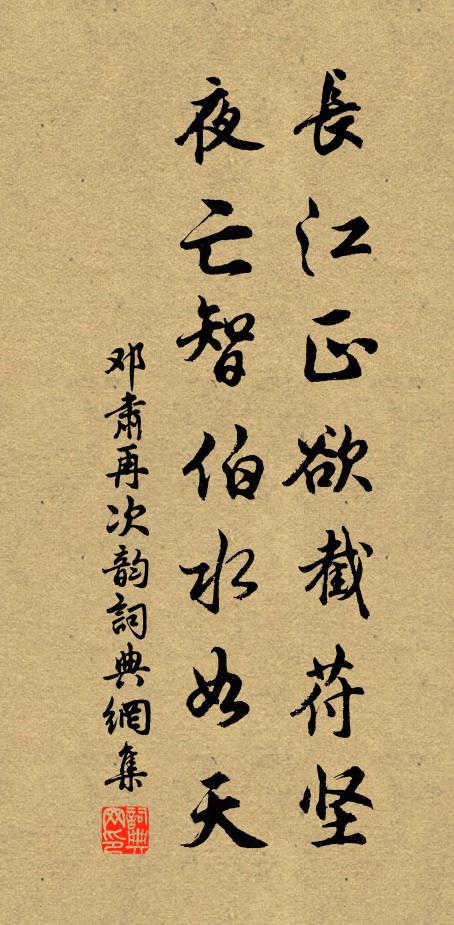 長江正欲截苻坚
夜亡智伯水如天
邓肅再次韵詞典網集
詞典
网印